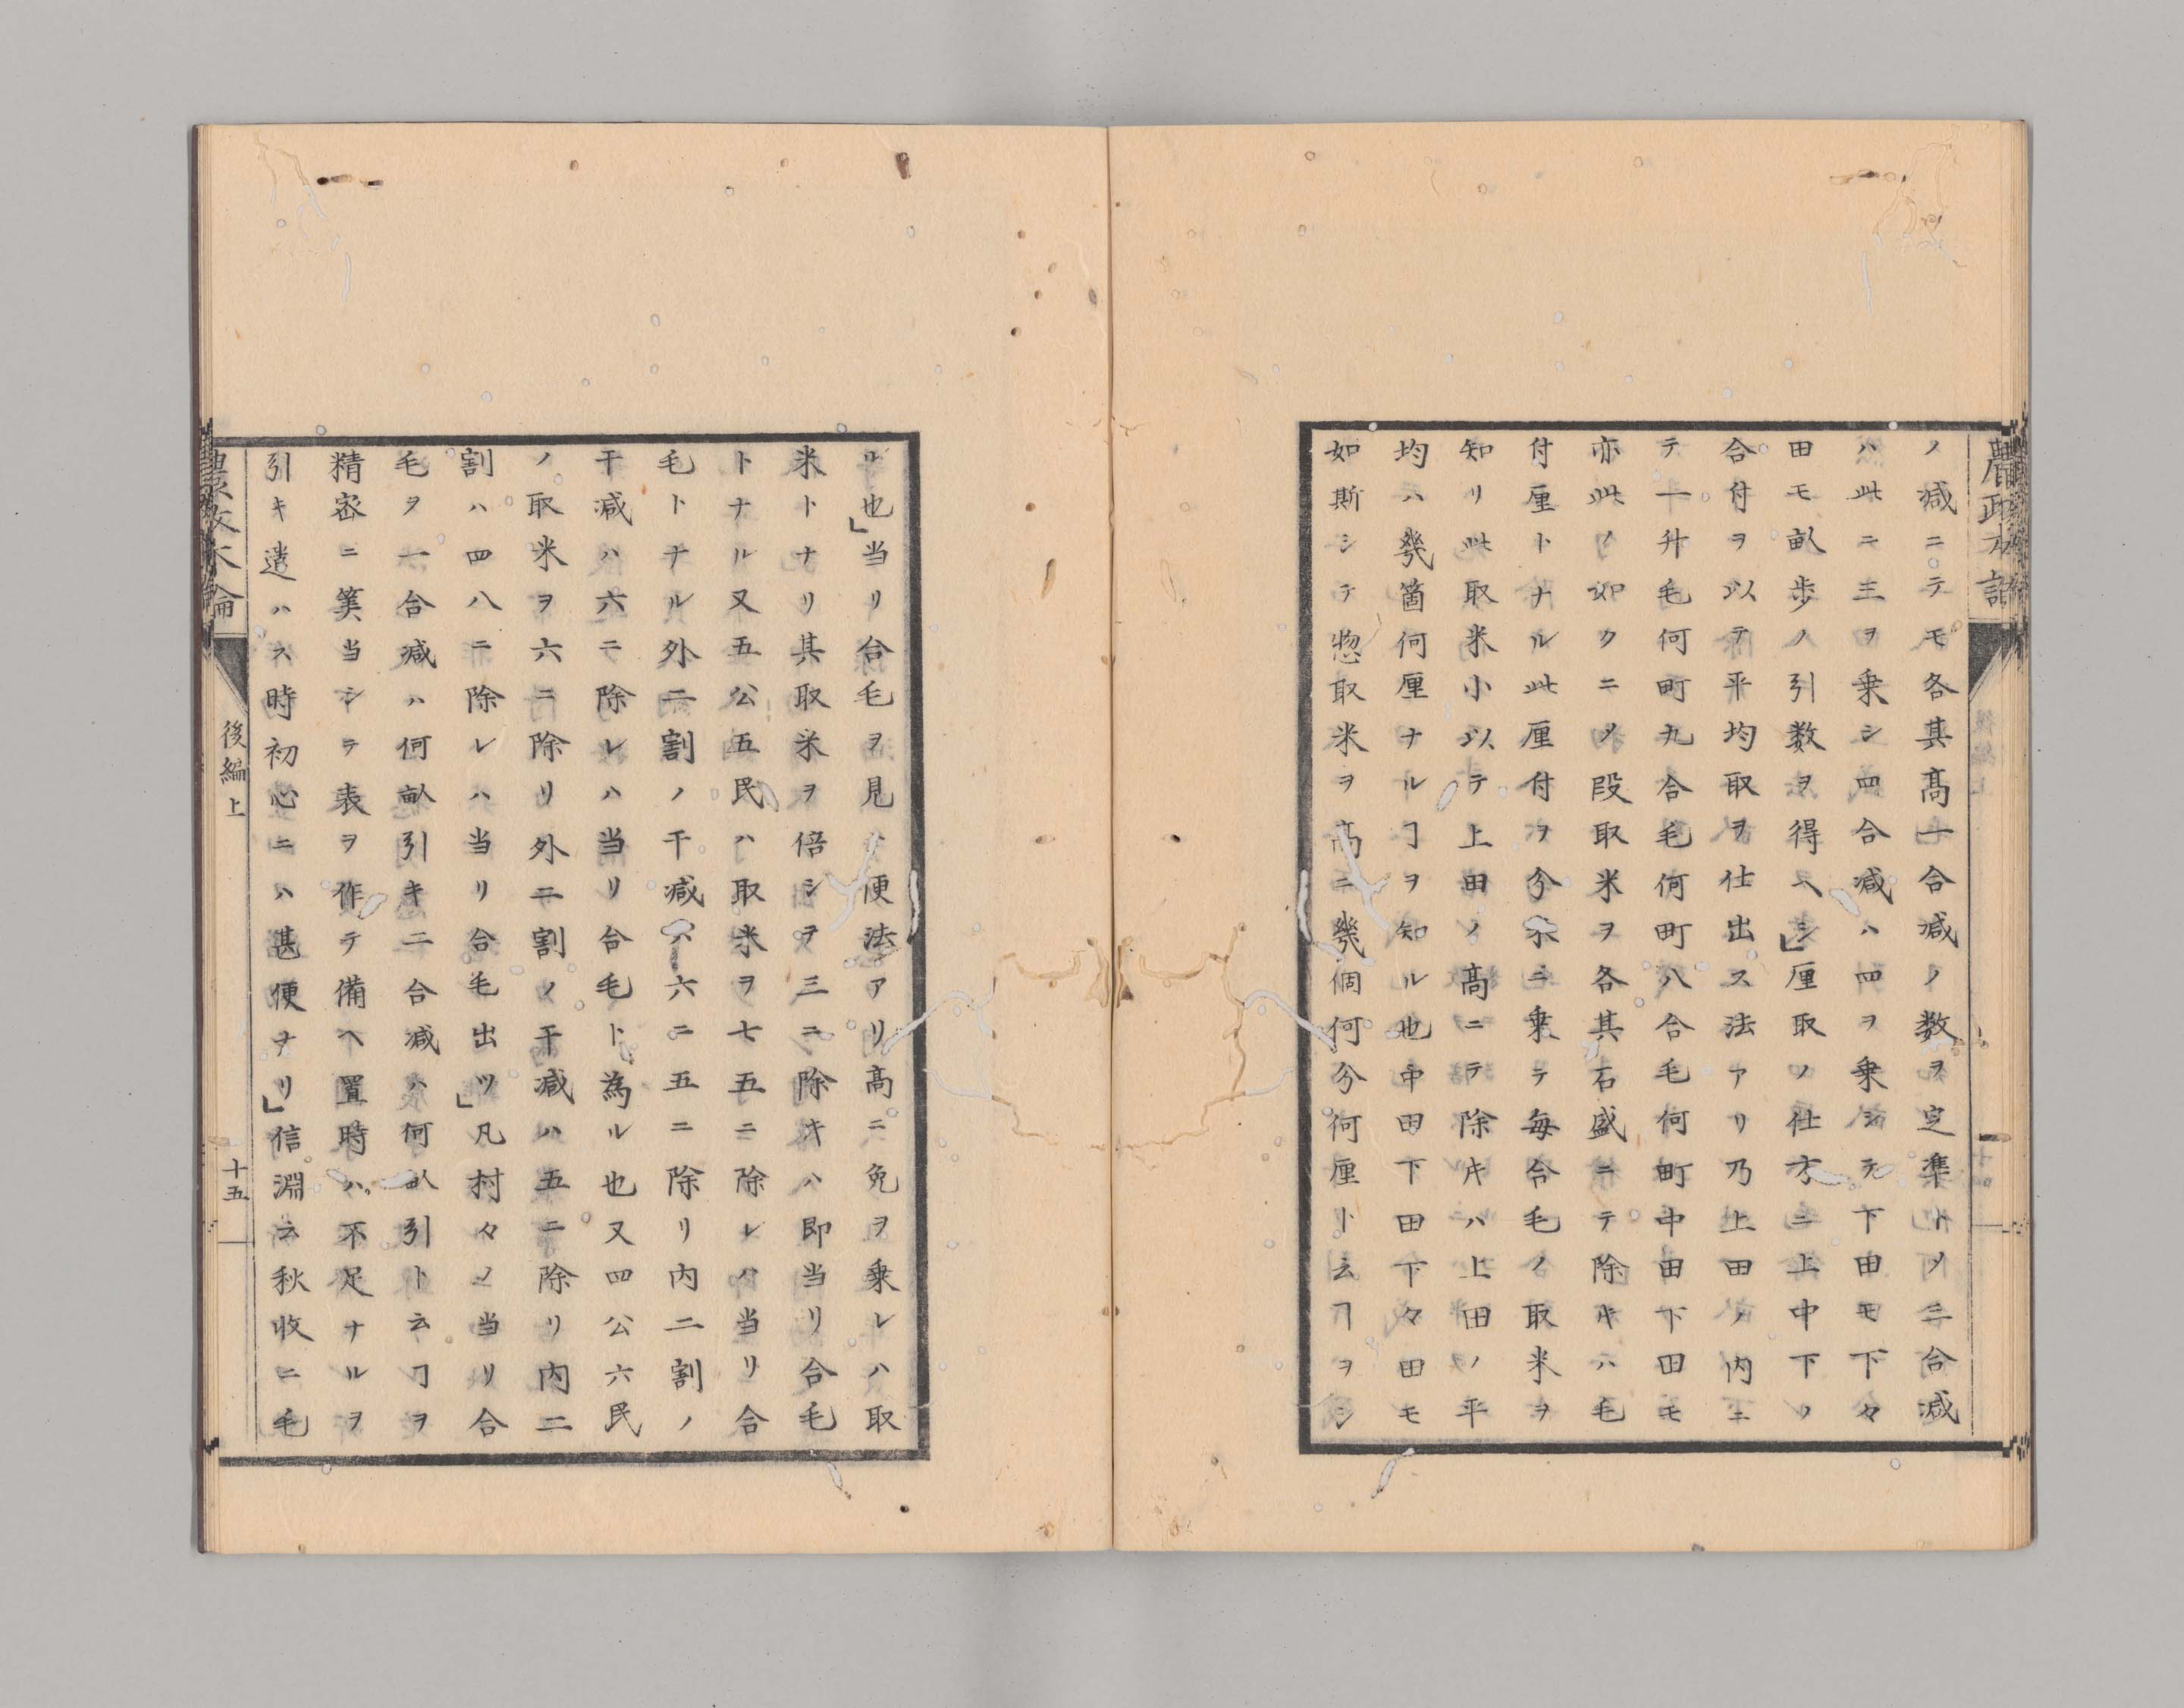 ノ減ニテモ各其髙一合減ノ数ヲ定準トメ三合減
ハ此ニ三ヲ乗シ四合減ハ四ヲ乗シテ下田モ下々
田モ畝歩ノ引数ヲ得ヘシ」厘取ノ仕方ニ上中下ノ
合付ヲ以テ平均取ヲ仕出ス法アリ乃上田ノ内ニ
テ一升毛何町九合毛何町八合毛何町中田下田モ
亦此ノ如クニメ段取米ヲ各其石盛ニテ除キハ毛
付厘トナル此厘付ヲ分米ニ乗テ毎合毛ノ取米ヲ
知リ此取米小以テ上田ノ髙ニテ除キハ上田ノ平
均ハ幾箇何厘ナルヿヲ知ル也中田下田下々田モ
如斯シテ惣取米ヲ髙ニ幾個何分何厘ト云ヿヲシ
ル也」当リ合毛ヲ見ル便法アリ髙ニ免ヲ乗レハ取
米トナリ其取米ヲ倍シヲ三ニ除キハ即当リ合毛
トナル又五公五民ハ取米ヲ七五ニ除レハ当リ合
毛トナル外二割ノ干減ハ六ニ五ニ除リ内二割ノ
干減ハ六ニ除レハ当リ合毛ト為ル也又四公六民
ノ取米ヲ六ニ除リ外二割ノ干減ハ五ニ除リ内二
割ハ四八ニ除レハ当リ合毛出ツ」凡村々ノ当リ合
毛ヲ一合減ハ何畝引キ二合減ハ何畝引ト云ヿヲ
精密ニ筭当シテ表ヲ作テ備ヘ置時ハ不足ナルヲ
引キ遣ハス時初心ニハ甚便ナリ」信淵云秋收ニ毛
後編上
十五